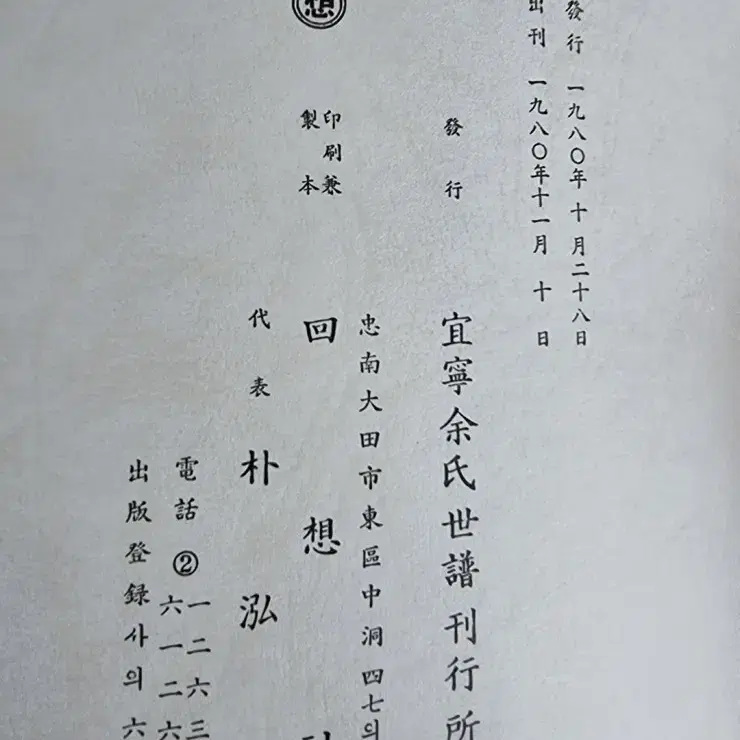 發行 一九八〇年 十 月二十八日
出刊 一九八〇年十一月 十 日
發行 宜寧余氏世譜刊行所
忠南大田市東區中洞 四七의
想
印刷兼
製本
回想
代表 朴泓
電話 ②
一二六三
六一二六
出版登録사의六